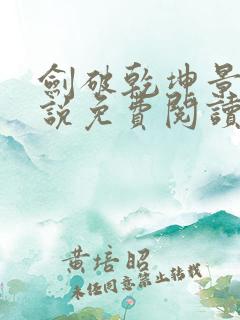 劍破乾坤景
說免費閱讀
黃培昭
未经同意禁止转载